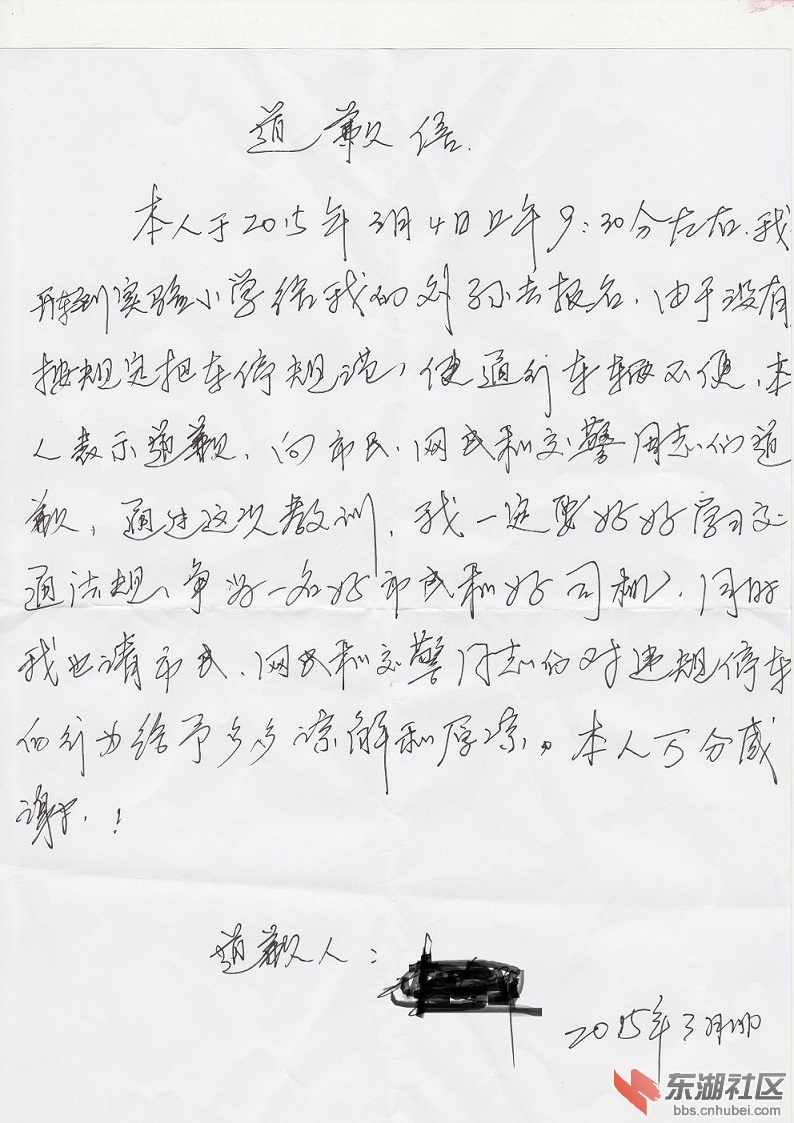 道歉信.
本人于2015年3月4日上午9:30分左右.我
开车到实验小学给我的外孙去报名.由于没有
按规定把车停规范,使通行车辆不便.本
人表示道歉.向市民.网民和交警同志们道
歉,通过这次教训,我一定要好好学习交
通法规、争当一名好市民和好司机.同时
我也请市民、网民和交警同志们对违规停车
的行为给予多多谅解和原谅。本人万分感
谢.!
道歉人:
2015年3月
东湖社区
bbs.cnhubei.com